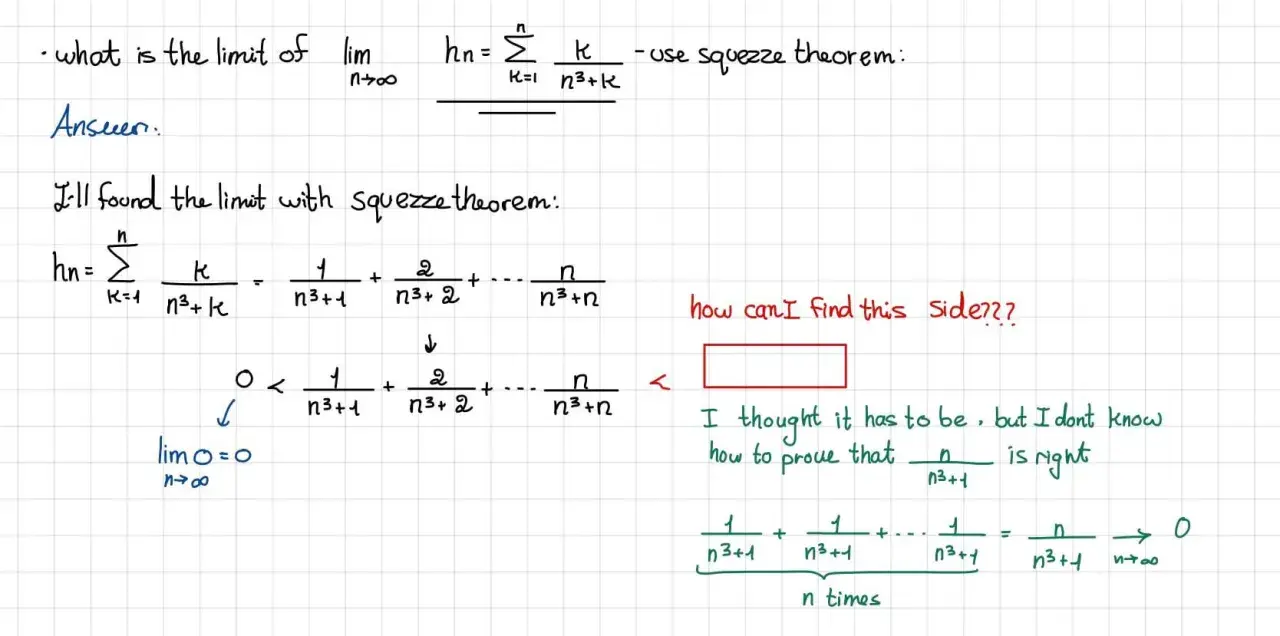 · what is the limit of lim n→∞ hn = n Σ k=1 k/(n³+k) - use squezze theorem:
Answer:
I'll found the limit with squezze theorem:
hn = n Σ k=1 k/(n³+k) = 1/(n³+1) + 2/(n³+2) + ... n/(n³+n)
how can I find this side???
↓
0 < 1/(n³+1) + 2/(n³+2) + ... n/(n³+n) <
↙
lim n→∞ 0 = 0
I thought it has to be, but I dont know
how to prove that n/(n³+1) is right
1/(n³+1) + 1/(n³+1) + ... 1/(n³+1) = n/(n³+1) → n→∞ 0
n times